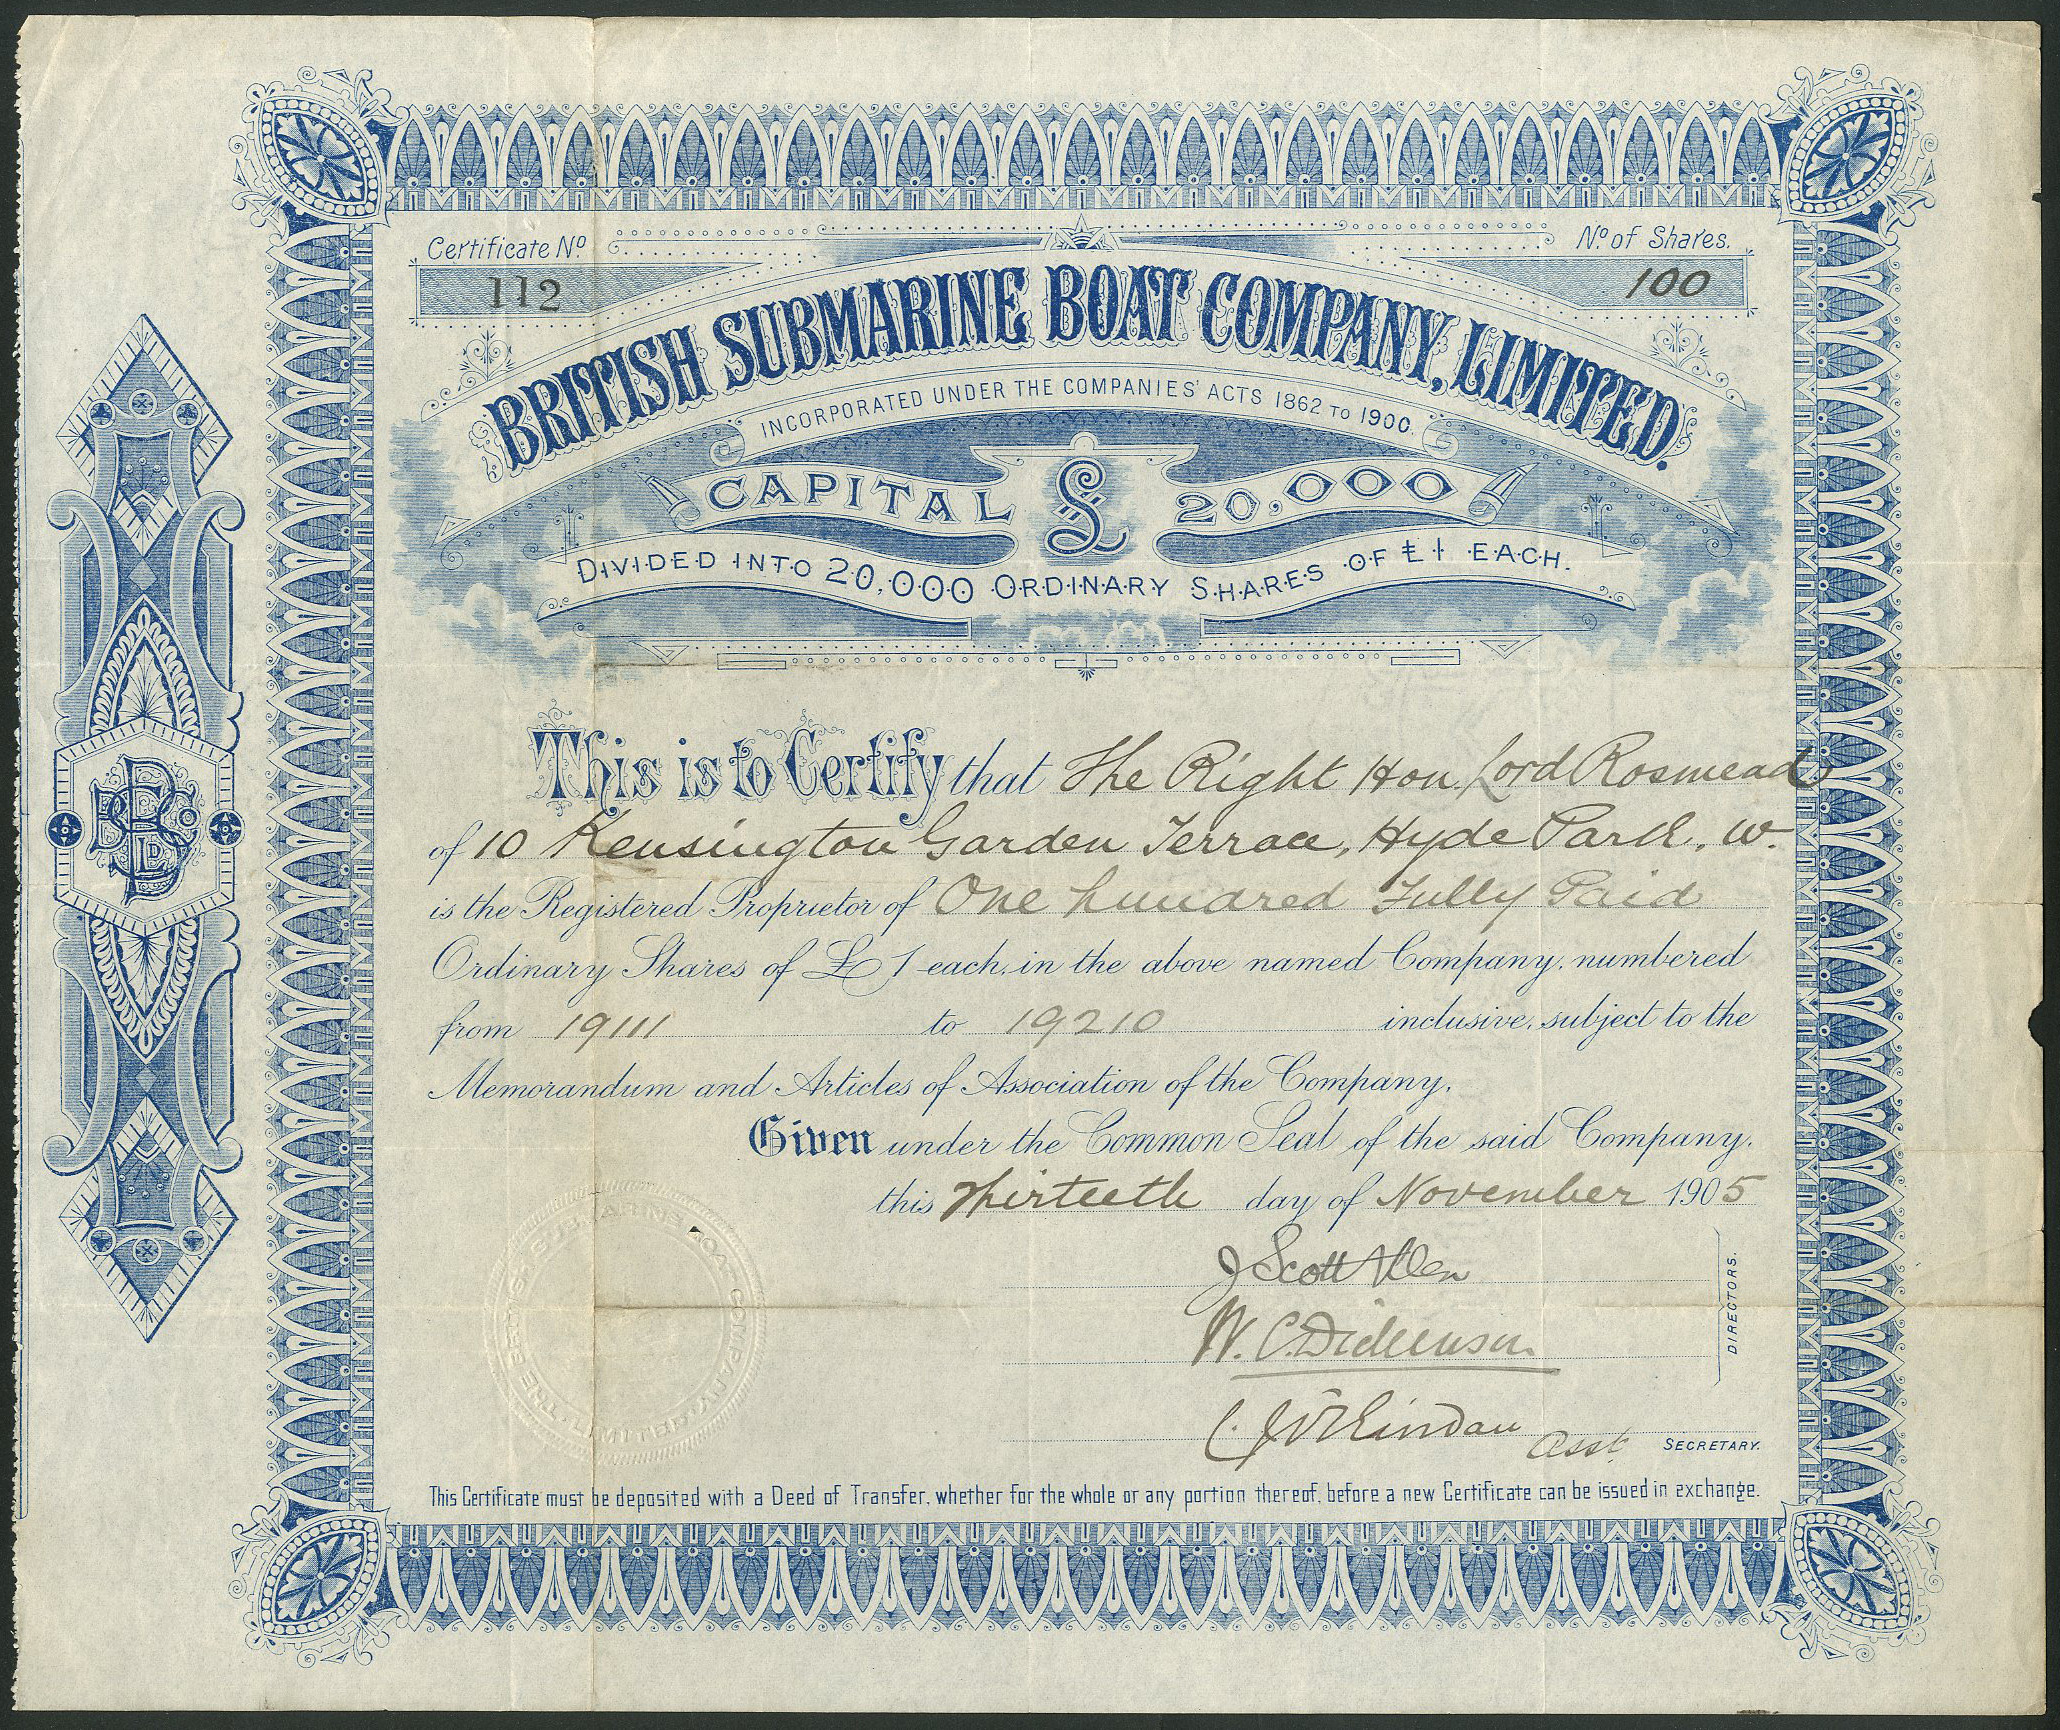 Certificate No.
112
No. of Shares.
100
BRITISH SUBMARINE BOAT COMPANY, LIMITED.
INCORPORATED UNDER THE COMPANIES' ACTS 1862 TO 1900.
CAPITAL £ 20,000
DIVIDED INTO 20,000 ORDINARY SHARES OF £1 EACH.
This is to Certify that The Right Hon. Lord Rosmead
of 10 Kensington Garden Terrace, Hyde Park, W.
is the Registered Proprietor of One hundred Fully Paid
Ordinary Shares of £1 each, in the above named Company, numbered
from 19111 to 19210 inclusive, subject to the
Memorandum and Articles of Association of the Company.
Given under the Common Seal of the said Company,
this Thirteeth day of November 1905
J Scott Allen
W. C. Dickenson
DIRECTORS.
Asst. SECRETARY.
THE BRITISH SUBMARINE BOAT COMPANY LIMITED
This Certificate must be deposited with a Deed of Transfer, whether for the whole or any portion thereof, before a new Certificate can be issued in exchange.